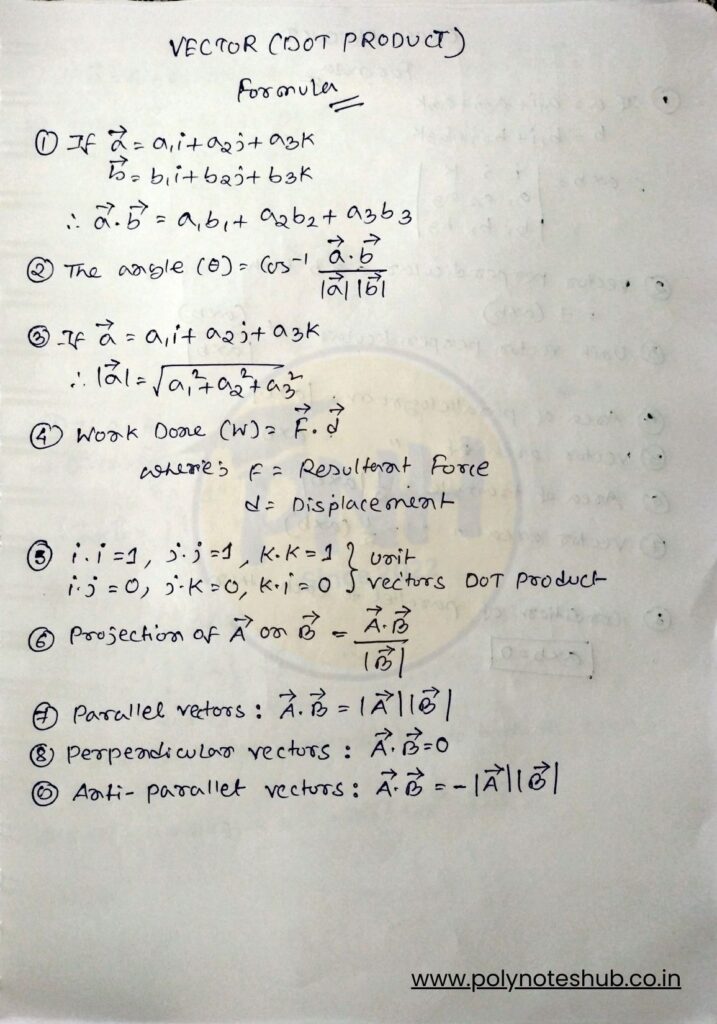 VECTOR (DOT PRODUCT)
Formula
① If a⃗ = a₁i + a₂j + a₃k
b⃗ = b₁i + b₂j + b₃k
∴ a⃗·b⃗ = a₁b₁ + a₂b₂ + a₃b₃
② The angle (θ) = Cos⁻¹ a⃗·b⃗ / |a⃗| |b⃗|
③ If a⃗ = a₁i + a₂j + a₃k
∴ |a⃗| = √(a₁² + a₂² + a₃²)
④ Work Done (W) = F⃗·d⃗
where; F = Resultant Force
d = Displacement
⑤ i·i = 1, j·j = 1, k·k = 1 } unit
i·j = 0, j·k = 0, k·i = 0 } vectors DOT Product
⑥ Projection of A⃗ on B⃗ = A⃗·B⃗ / |B⃗|
⑦ Parallel vectors: A⃗·B⃗ = |A⃗||B⃗|
⑧ Perpendicular vectors: A⃗·B⃗ = 0
⑨ Anti-parallel vectors: A⃗·B⃗ = -|A⃗||B⃗|
www.polynoteshub.co.in